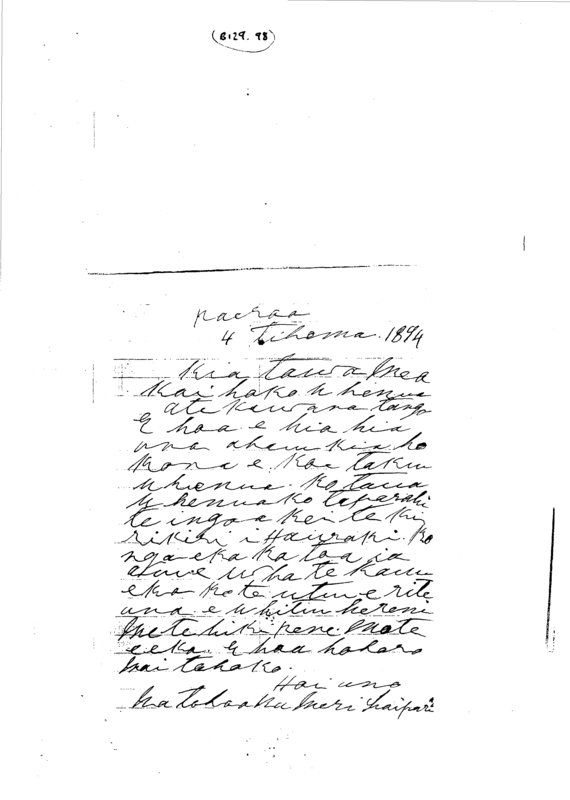 (B129. 98)
Paeraa
4 Tihema. 1894
Kia tawa Mea
Kai hoko W henua
ate Kawana tanga
E hoa e hia hia
una ahau Kia ho
Kona e. Koe taku
Whenua. Ko taua
W henua ko
te ingoa Kei te Ki
rikiri i Hauraki. Ko
nga eka ka toa ia
W ha te Kau
eka Ko te utu e rite
ana e Whitu hereni
Me te hiki pene. Mote
eeka. E hoa hohoro
mai tahako.
Hai uno
Na to hoa Na Meri Haipari